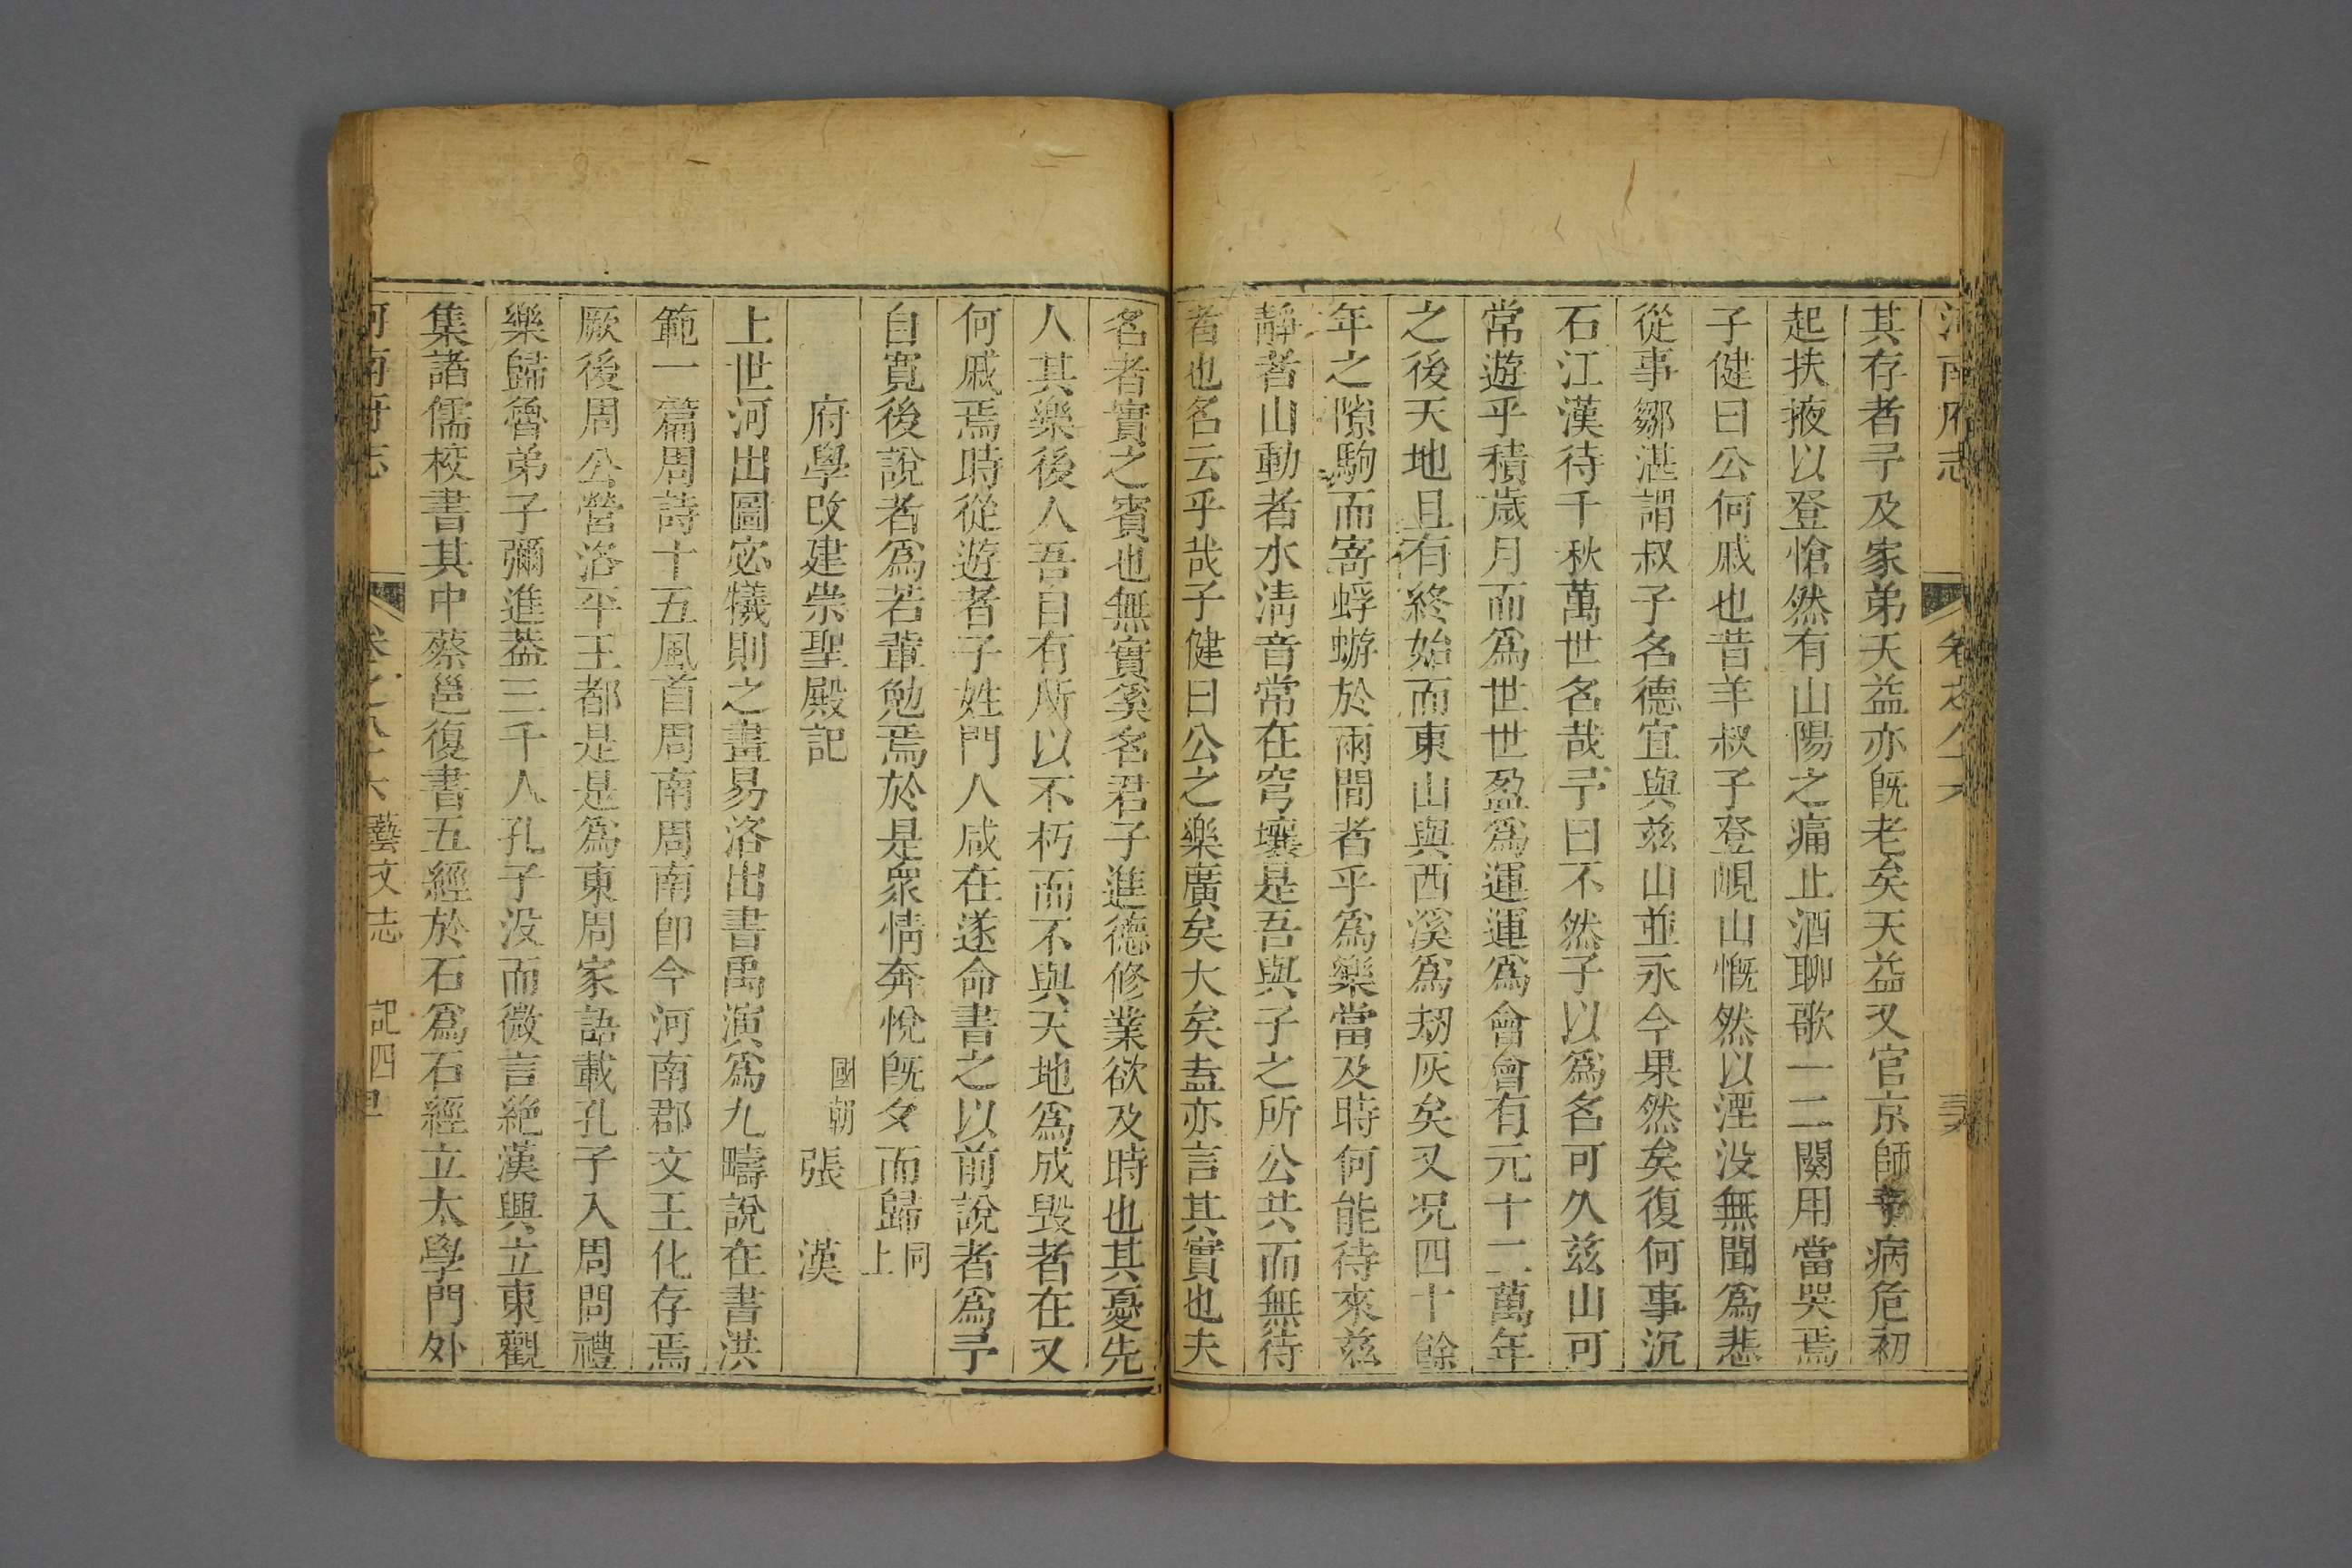 河南府志 卷之八十六
其存者予及家弟天益亦旣老矣天益又官京師予病危初
起扶掖以登愴然有山陽之痛止酒聊歌一二闋用當哭焉
子健曰公何戚也昔羊叔子登峴山慨然以湮没無聞爲悲
從事鄒湛謂叔子名德宜與兹山並永今果然矣復何事沉
石江漢待千秋萬世名哉予曰不然子以爲名可久兹山可
常遊乎積歲月而爲世世盈爲運運爲會會有元十二萬年
之後天地且有終始而東山與西溪爲刼灰矣又况四十餘
年之隙駒而寄蜉蝣於兩間者乎爲樂當及時何能待來兹
靜者山動者水淸音常在穹壤是吾與子之所公共而無待
者也名云乎哉子健曰公之樂廣矣大矣盍亦言其實也夫
名者實之賓也無實奚名君子進德修業欲及時也其憂先
人其樂後人吾目有所以不朽而不與天地爲成毁者在又
何戚焉時從遊者子姓門人咸在遂命書之以前說者爲予
自寛後說者爲若輩勉焉於是衆情奔悅旣夕而歸 同上
府學改建崇聖殿記 國朝 張 漢
上世河出圖宓犧則之畫易洛出書禹演爲九疇說在書洪
範一篇周詩十五風首周南周南卽今河南郡文王化存焉
厥後周公營洛平王都是是爲東周家語載孔子入周問禮
樂歸魯弟子彌進葢三千人孔子没而微言絶漢興立東觀
集諸儒校書其中蔡邕復書五經於石爲石經立太學門外
河南府志 卷之八十六 藝文志 記四